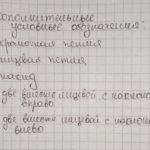 дополнительные
условные обозначения:
кромочная петля
лицевая петля
накид
две вместе лицевой с наклоном
вправо
две вместе лицевой с наклоном
влево